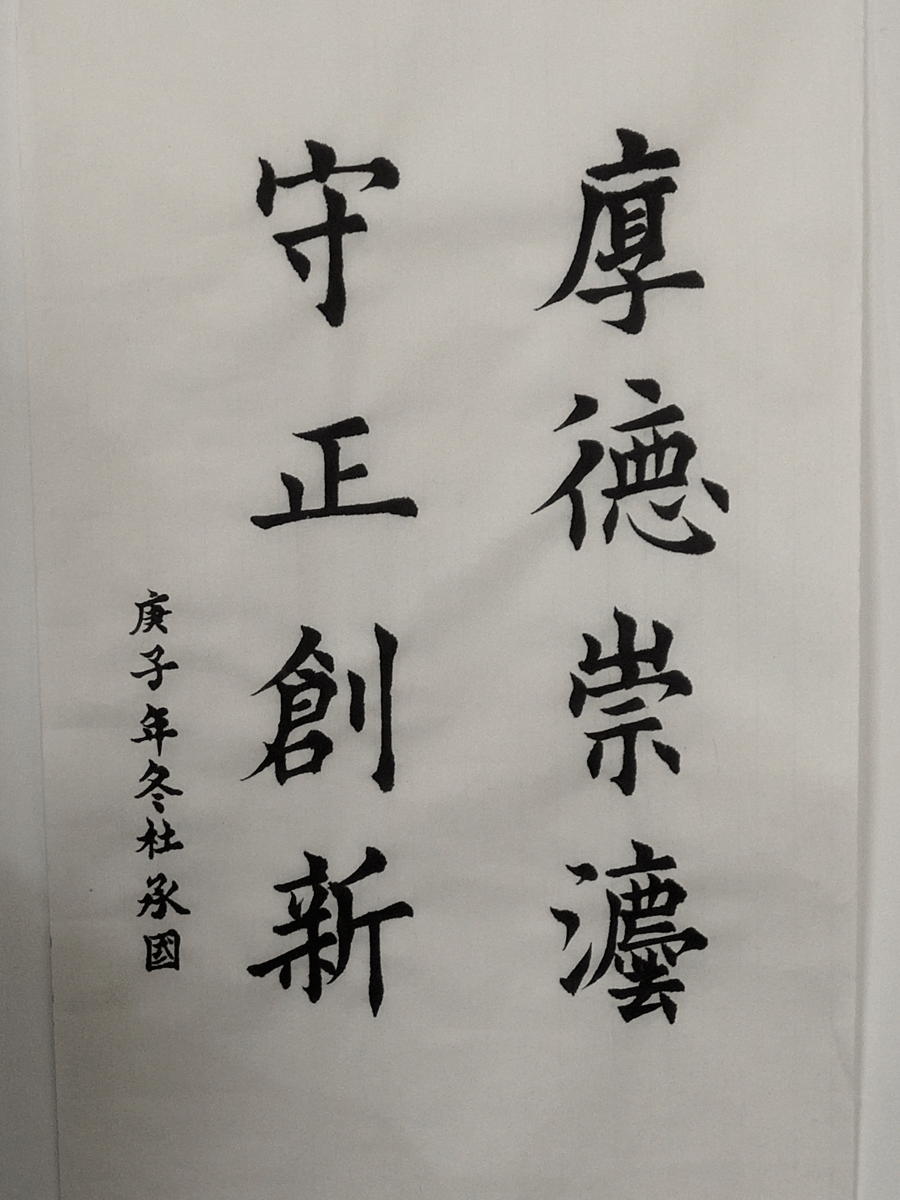 厚德崇灋
守正創新
庚子年冬杜承國